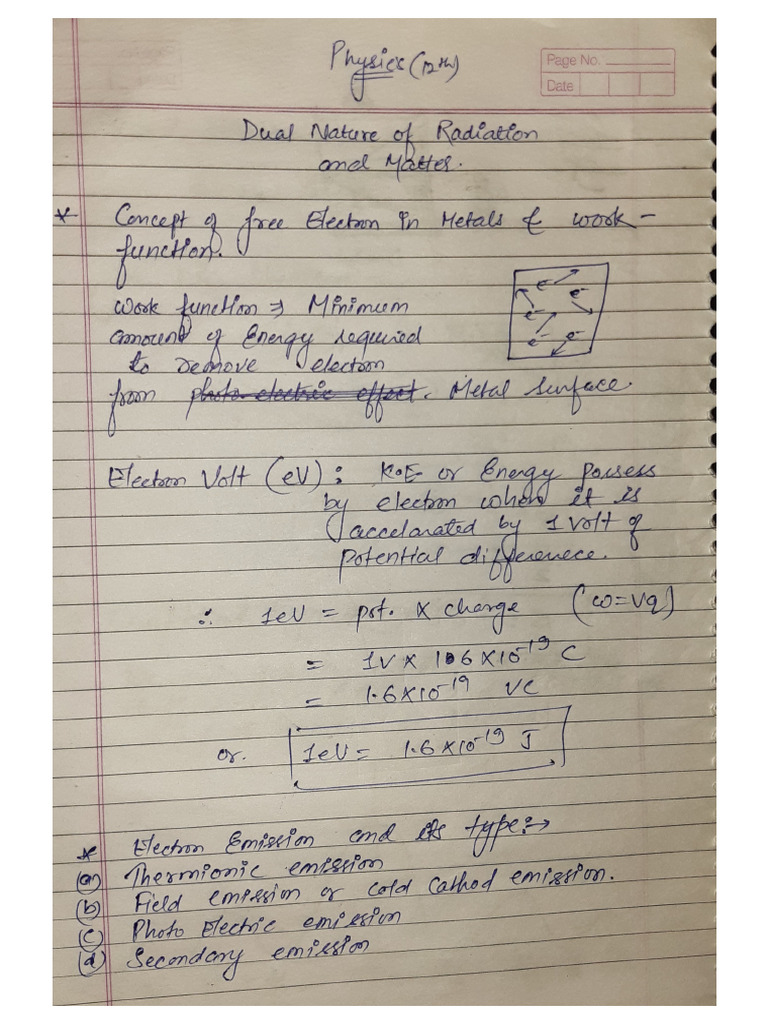 Physics (12th)
Page No.
Date
Dual Nature of Radiation
and Matter.
* Concept of free Electron in Metals & work-
function.
work function ⇒ Minimum
amount of Energy required
to remove electron
from photo electric effect. Metal Surface.
e⁻
e⁻
e⁻
e⁻
e⁻
Electron Volt (eV) : K.E or Energy possess
by electron when it is
accelarated by 1 Volt of
potential differenece.
∴ 1eV = pot. X charge (ω=Vq)
= 1V × 1.6×10⁻¹⁹ C
= 1.6×10⁻¹⁹ VC
or. 1eV = 1.6×10⁻¹⁹ J
* Electron Emission and its type:→
(a) Thermionic emission
(b) Field emission or cold Cathod emission.
(c) Photo Electric emission
(d) Secondary emission